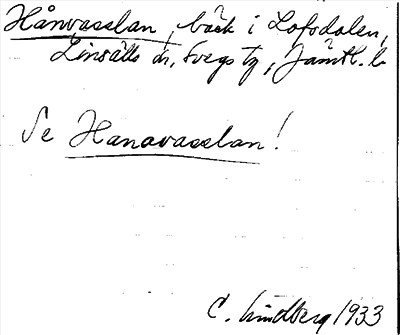 Hånvasslan, bäck i Lofsdalen,
Linsälls sn, Svegs tg, Jämtl. l.
Se Hanavasslan!
C. Lindberg 1933